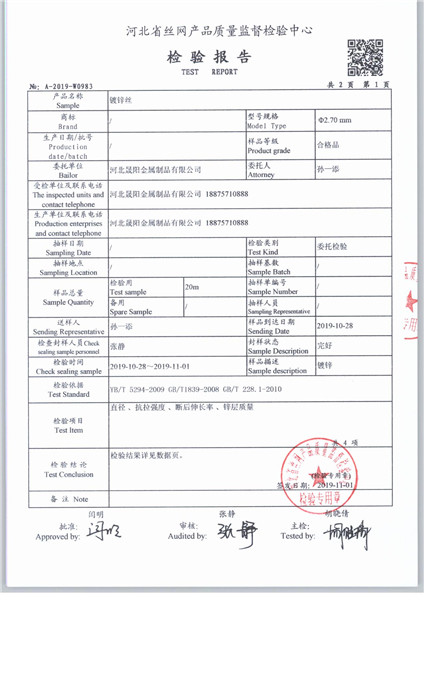 河北省丝网产品质量监督检验中心
检 验 报 告
TEST REPORT
№: A-2019-W0983
共 2 页 第 1 页
产品名称 Sample
镀锌丝
商标 Brand
/
型号规格 Model Type
Φ2.70 mm
生产日期/批号 Production date/batch
/
样品等级 Product grade
合格品
委托单位 Bailor
河北晟阳金属制品有限公司
委托人 Attorney
孙一添
受检单位及联系电话
The inspected units and contact telephone
河北晟阳金属制品有限公司 18875710888
生产单位及联系电话
Production enterprises and contact telephone
河北晟阳金属制品有限公司 18875710888
抽样日期 Sampling Date
/
检验类别 Test Kind
委托检验
抽样地点 Sampling Location
/
抽样基数 Sample Batch
/
样品总量 Sample Quantity
检验用 Test sample
20m
抽样单编号 Sample Number
/
备用 Spare Sample
/
抽样人员 Sampling Representative
/
送样人 Sending Representative
孙一添
样品到达日期 Sending Date
2019-10-28
检查封样人员 Check sealing sample personnel
张静
封样状态 Sample Description
完好
检验时间 Check sealing sample
2019-10-28~2019-11-01
样品描述 Sample description
镀锌
检验依据 Test Standard
YB/T 5294-2009 GB/T1839-2008 GB/T 228.1-2010
检验项目 Test Item
直径、抗拉强度、断后伸长率、锌层质量
共 4 项
检验结论 Test Conclusion
检验结果详见数据页。
(检验专用章)
签发日期: 2019-11-01
检验专用章
备 注 Note
闫明
张静
胡晓倩
批准:
审核:
主检:
Approved by:
Audited by:
Tested by: